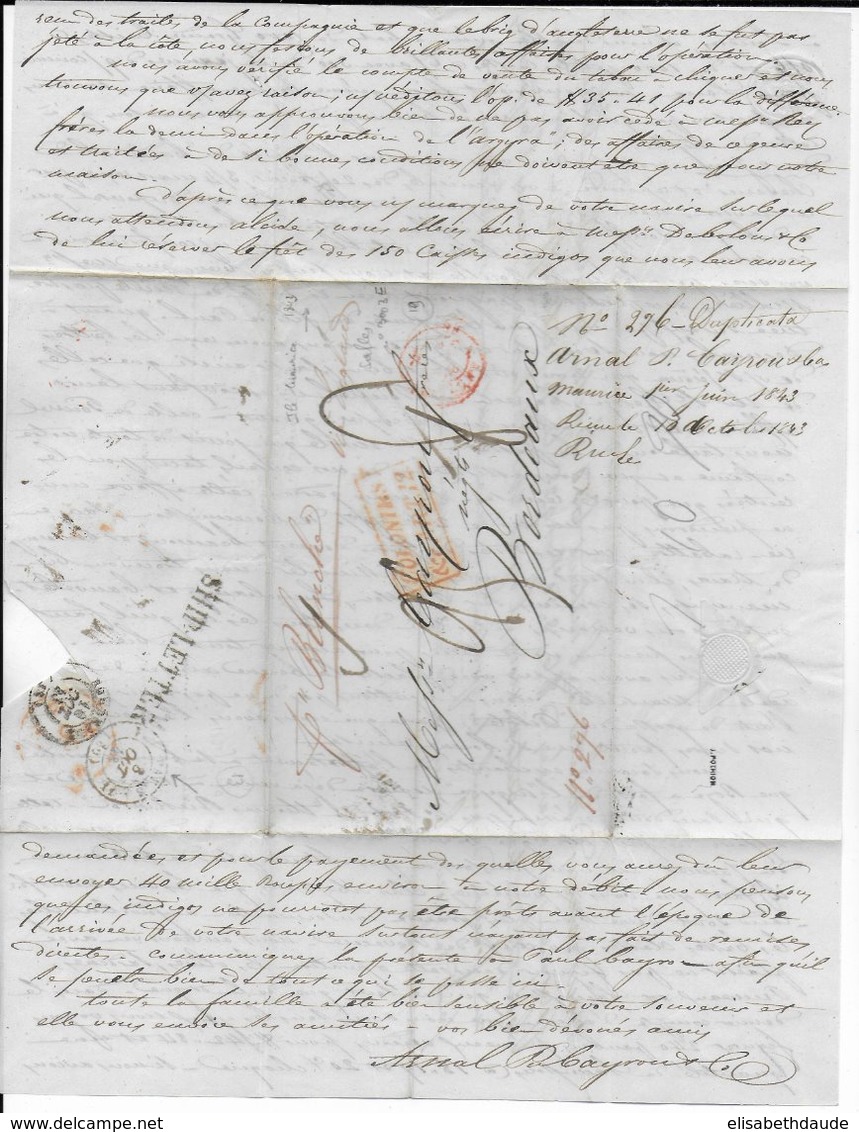 des traites de la Compagnie et que le brig d'angleterre ne se fut pas
jeté à la côte, nous fesions de brillantes affaires pour l'opération.
nous avons vérifié le compte de vente du tabac à chiquer et nous
trouvons que v/ avez raison; n/ créditons l'op. de $35-41 pour la différence
nous vous approuvons bien de ne pas avoir cédé à Mess.rs Rey
frères la demie dans l'opération de l'"; des affaires de ce genre
et traitées à de si bonnes conditions ne doivent être que pour notre
maison.
d'après ce que vous n/ marquez de votre navire sur lequel
nous attendons aloïde, nous allons écrire à Mess.rs & Co
de lui réserver le frêt des 150 Caisses indigos que nous leur avons
No 296 - Duplicata
Arnal P. Cayrou & Co
Maurice 1er juin 1843
10 Octobre 1843
Ile Maurice
Salles
19
COLONIES
SHIP LETTER
13
Mess.rs Cayrou
Bordeaux
No 296
J. POTHION
demandées et pour le payement des quelles vous aurez dû leur
envoyer 40 mille Roupies environ à notre débit. nous pensons
que ces indigos ne pourront pas être prêts avant l'époque de
l'arrivée de votre navire surtout n'ayant pas fait de remises
directes. communiquez la présente à Paul Cayrou afin qu'il
se pénètre bien de tout ce qui se passe ici.
toute la famille a été bien sensible à votre souvenir et
elle vous envoie ses amitiés - vos bien dévoués amis
Arnal P. Cayrou & Co
elisabethdaude
www.delcampe.net